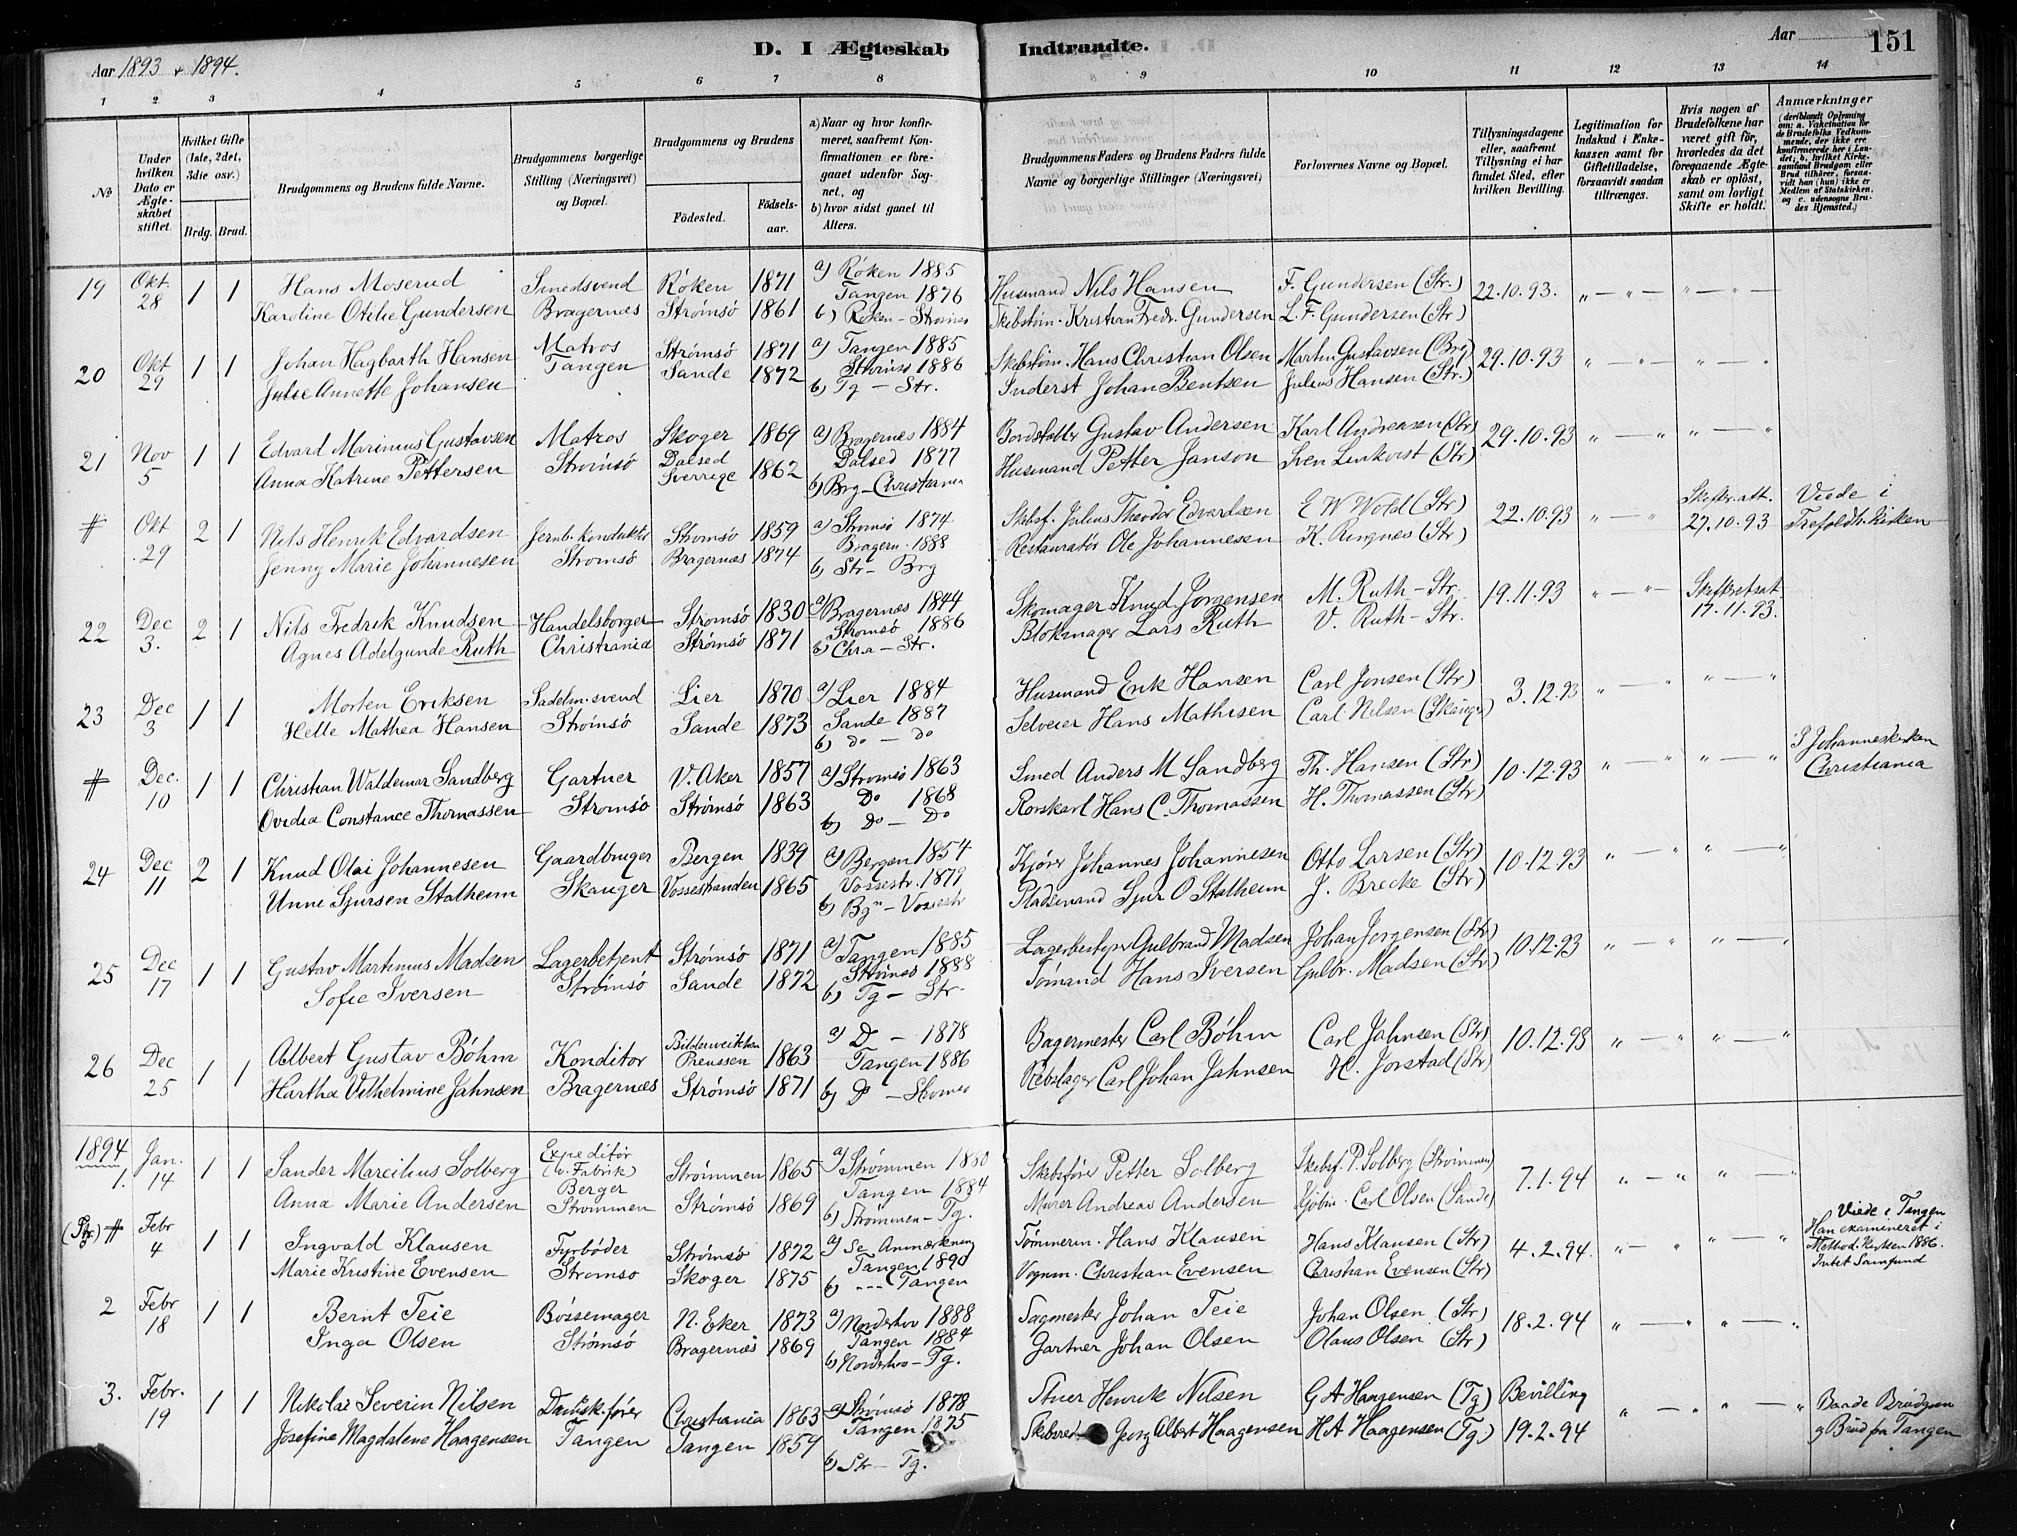 Aar 1893 & 1894.
D. I Ægteskab Indtraadte.
Aar
151
1 2 3 4 5 6 7 8 9 10 11 12 13 14
No
Under hvilken Dato er Ægteskabet stiftet.
Hvilket Gifte (1ste, 2det, 3die osv.)
Brdg. Brud.
Brudgommens og Brudens fulde Navne.
Brudgommens borgerlige Stilling (Næringsvei) og Bopæl.
Brudgommens og Brudens
Födested.
Födselsaar.
a) Naar og hvor konfirmeret, saafremt Konfirmationen er foregaaet udenfor Sognet, og
b) hvor sidst gaaet til Alters.
Brudgommens Faders og Brudens Faders fulde Navne og borgerlige Stillinger (Næringsvei)
Forlovernes Navne og Bopæl.
Tillysningsdagene eller, saafremt Tillysning ei har fundet Sted, efter hvilken Bevilling.
Legitimation for Indskud i Enkekassen samt for Giftetilladelse, forsaavidt saadan tiltrænges.
Hvis nogen af Brudefolkene har været gift för, hvorledes da det foregaaende Ægteskab er oplöst, samt om lovligt Skifte er holdt.
Anmærkninger (deriblandt Oplysning om: a. Vakcination for de Brudefolks Vedkommende, der ikke ere konfirmerede her i Landet; b. hvilket Kirkesamfund Brudgom eller Brud tilhörer, forsaavidt han (hun) ikke er Medlem af Statskirken, og c. udensogns Brudes Hjemsted.)
19 Okt. 28 1 1 Hans Moserud Smedsvend Røken 1871 a) Røken 1885 Husmand Nils Hansen F. Gundersen (Str.) 22.10.93. „ — „ — „ — „ —
Karoline Otilie Gundersen Bragernæs Strømsö 1861 Tangen 1876 Skibstøm. Kristian Fredr. Gundersen L. F. Gundersen (Str)
b) Røken - Strømsö
20 Okt 29 1 1 Johan Hagbarth Hansen Matros Strømsö 1871 a) Tangen 1885 Skibstøm. Hans Christian Olsen Martin Gustavsen (Brg) 29.10.93 „ „ — „ — „
Julie Annette Johansen Tangen Sande 1872 Strömsö 1886 Inderst Johan Bentsen Julius Hansen (Str.)
b) Tg - Str.
21 Nov 5 1 1 Edvard Marinius Gustavsen Matros Skoger 1869 a) Bragernæs 1884 Bordstabler Gustav Andersen Karl Andreasen (Str) 29.10.93 „ — „ „ — „
Anna Katrine Pettersen Strömsö Dalsed Sverrige 1862 Dalsed 1877 Husmand Petter Janson Sven Linkvist (Str)
b) Brg - Christiania
# Okt. 29 2 1 Nils Henrik Edvardsen Jernb. Konduktör Strømsö 1859 a) Strømsö 1874 Skibsf. Julius Theodor Edvardsen E W Wold (Str) 22.10.93 „ — „ Skifteatt. 27.10.93 Viede i Trefoldh. Kirken
Jenny Marie Johannesen Strömsö Bragernæs 1874 Bragern. 1888 Restauratør Ole Johannesen K. Ringnes (Str)
b) Str - Brg
22 Dec 3. 2 1 Nils Fredrik Knudsen Handelsborger Strömsö 1830 a) Bragernæs 1844 Skomager Knud Jørgensen M. Ruth - Str. 19.11.93 „ — „ — Skifteretsat. 17.11.93.
Agnes Adelgunde Ruth Christiania Strømsö 1871 Strömsö 1886 Blokmager Lars Ruth V. Ruth - Str.
b) Chra - Str.
23 Dec 3 1 1 Morten Eriksen Sadelm. svend Lier 1870 a) Lier 1884 Husmand Erik Hansen Carl Jonsen (Str) 3.12.93 „ — „ „ — „
Helle Mathea Hansen Strömsö Sande 1873 Sande 1887 Selveier Hans Mathisen Carl Nilsen (Skauger)
b) do - do
# Dec. 10 1 1 Christian Waldemar Sandberg Gartner V. Aker 1857 a) Strömsö 1863 Smed Anders M Sandberg Th. Hansen (Str) 10.12.93 „ — „ „ — „ I Johanneskirken Christiania
Ovidia Constance Thomassen Strömsö Strømsö 1863 Do 1868 Rorskarl Hans C. Thomassen H. Thomassen (Str)
b) Do - Do
24 Dec 11 2 1 Knud Olai Johannesen Gaardbruger Bergen 1839 a) Bergen 1854 Kjörer Johannes Johannesen Otto Larsen (Str) 10.12.93 „ — „ „ — „
Unni Sjursen Stalheim Skauger Vossestranden 1865 Vossestr. 1879 Pladsmand Sjur O Stalheim J. Brecke (Str)
b) Bgn - Vossestr
25 Dec 17 1 1 Gustav Martinius Madsen Lagerbetjent Strømsö 1871 a) Tangen 1885 Lagerbestyrer Gulbrand Madsen Johan Jørgensen (Str) 10.12.93 „ — „ „ — „
Sofie Iversen Strømsö Sande 1872 Strömsö 1888 Tømand Hans Iversen Gulbr. Madsen (Str)
b) Tg - Str.
26 Dec 25 1 1 Albert Gustav Böhm Konditor Preussen 1863 a) D - 1878 Bagermester Carl Böhm Carl Jahnsen (Str) 10.12.93 „ — „ „ — „
Hartha Vilhelmine Jahnsen Bragernæs Strømsö 1871 Tangen 1886 Rebslager Carl Johan Jahnsen H. Jorstad (Str)
b) D - Strömsö
1894
1. Jan. 14 1 1 Sander Marcilius Solberg Expeditör (v. Fabrik) Berger Strømmen 1865 a) Strømmen 1880 Skibsfører Petter Solberg Skibsf. P. Solberg (Strømmen) 7.1.94 „ — „ „ — „
Anna Marie Andersen Strømmen Strømsö 1869 Tangen 1884 Murer Andreas Andersen Kjøbm. Carl Olsen (Sande)
b) Strømmen - Tg.
(Str) # Febr 4 1 1 Ingvald Klausen Fyrböder Strømsö 1872 a) Se Anmærkning Tømmerm. Hans Klausen Hans Klausen (Str) 4.2.94. „ — „ „ — „ Viede i Tangen Han examineret i Method. Kirken 1886. Intet Samfund
Marie Kristine Evensen Strømsö Skoger 1875 Tangen 1890 Vognm. Christian Evensen Christian Evensen (Str)
b) --- Tangen
2 Febr 18 1 1 Bernt Teie Bössemager N. Eker 1873 a) Norderhov 1888 Sagmester Johan Teie Johan Olsen (Str) 18.2.94 „ — „ „ — „
Inga Olsen Strømsö Bragernæs 1869 Tangen 1884 Gartner Johan Olsen Olaus Olsen (Str)
b) Norderhov - Tg.
3. Febr. 19 1 1 Nikolai Severin Nilsen Dampsk. fører Christiania 1863 a) Strømsö 1878 Stuer Henrik Nilsen G A Haagensen (Tg) Bevilling „ — „ „ — „ Baade Brudgom og Brud fra Tangen
Josefine Magdalene Haagensen Tangen Tangen 1859 Tangen 1875 Skibsred. Georg Albert Haagensen H A Haagensen (Tg) 19.2.94
b) Str - Tg.